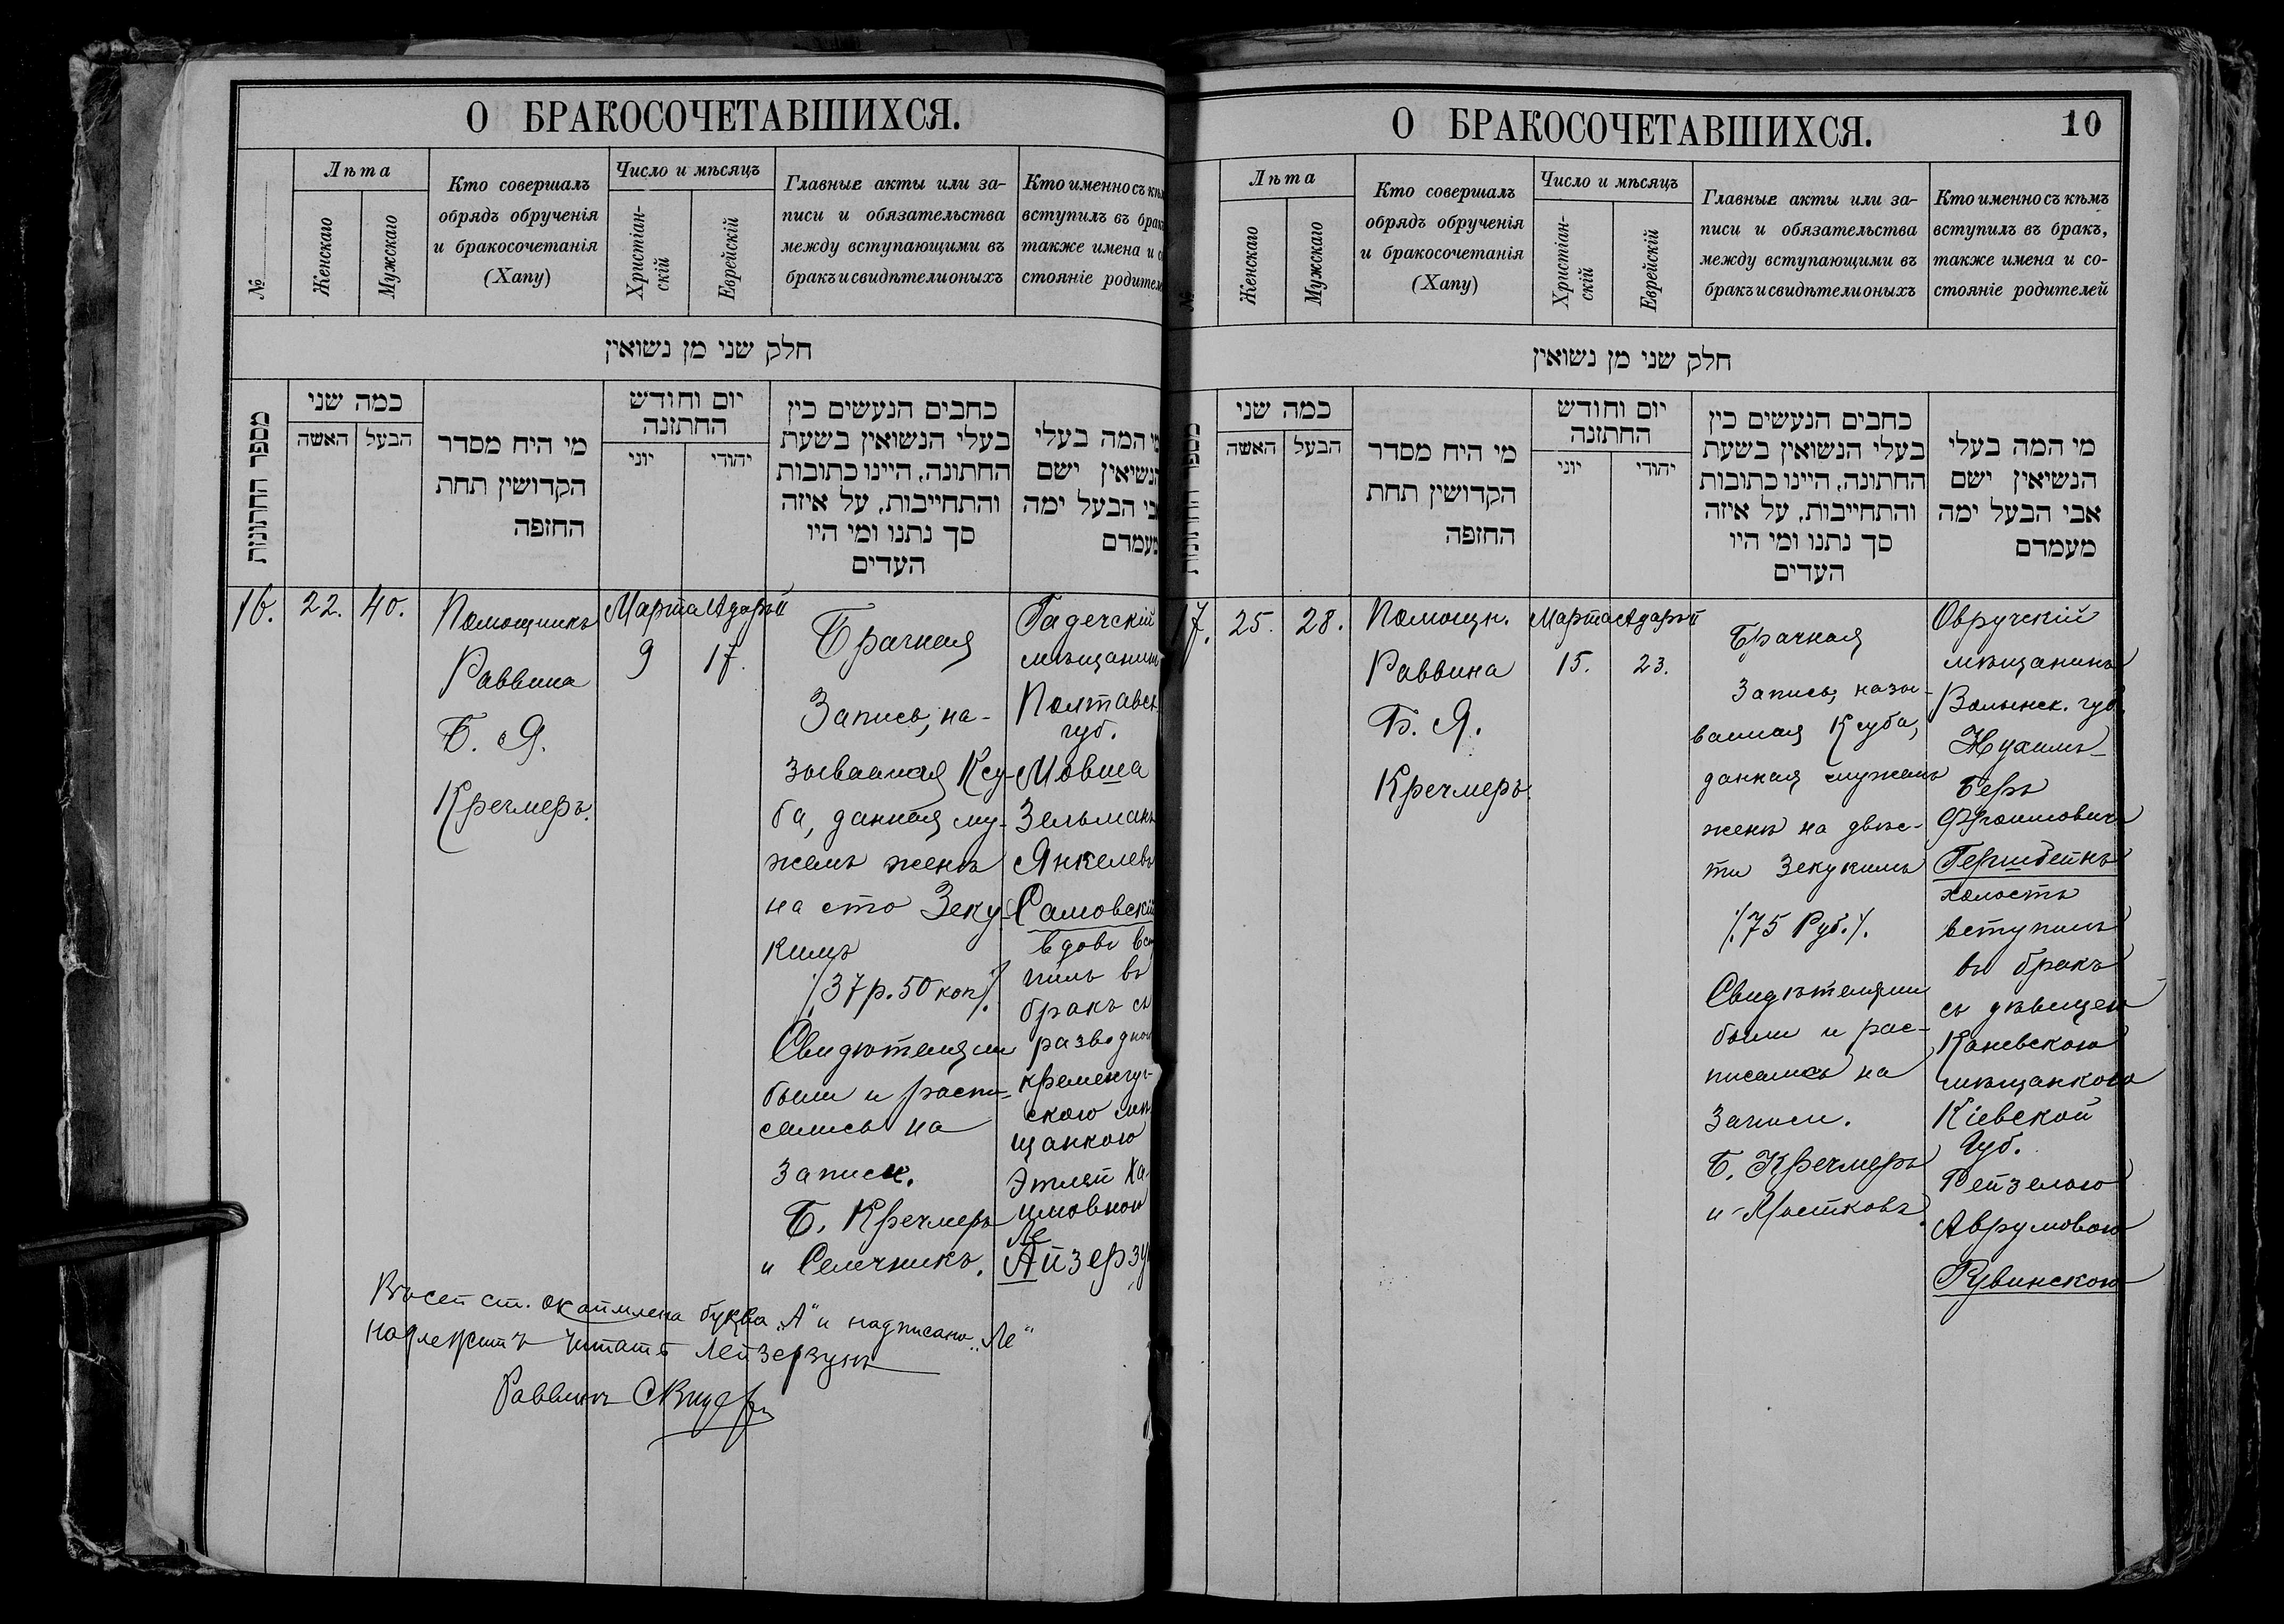 О БРАКОСОЧЕТАВШИХСЯ.
№
Лѣта
Женскаго
Мужскаго
Кто совершалъ
обрядъ обрученія
и бракосочетанія
(Хапу)
Число и мѣсяцъ
Христіан-
скій
Еврейскій
Главные акты или за-
писи и обязательства
между вступающими въ
бракъ и свидѣтели оныхъ
Кто именно съ кѣм
вступилъ въ брак
также имена и с
стояніе родител
חלק שני מן נשואין
מספר החתונות
כמה שני
האשה
הבעל
מי היח מסדר
הקדושין תחת
החזפה
יום וחודש
החתזנה
יוני
יהודי
כחבים הנעשים כין
בעלי הנשואין בשעת
החתונה, היינו כתובות
והתחייבות, על איזה
סך נתנו ומי היו
העדים
מי המה בעלי
הנשיאין ישם
אבי הבעל ימה
מעמדם
16.
22.
40.
Помощникъ
Раввина
Б. Я.
Кречмеръ.
Марта
9
Адаръ II
17.
Брачная
Запись, на-
зываемая Ксу-
ба, данная му-
жемъ женѣ
на сто Зеку-
кимъ
/37 р. 50 коп/.
Свидѣтелями
были и распи-
сались на
записи.
Б. Кречмеръ
и Селечникъ.
Гадечскій
мѣщанинъ
Полтавск.
губ.
Мовша
Зельманъ
Янкелевъ
Самовскій
вдовъ всту
пилъ въ
бракъ съ
разводной
кременчуг-
скою мѣ
щанкою
Этлей Ха-
имовной
Ле
Айзерзу
Въ сей ст. окаймлена буква „А" и надписано „Ле"
надлежитъ читать Лейзерзунъ
Раввинъ
О БРАКОСОЧЕТАВШИХСЯ.
10
№
Лѣта
Женскаго
Мужскаго
Кто совершалъ
обрядъ обрученія
и бракосочетанія
(Хапу)
Число и мѣсяцъ
Христіан-
скій
Еврейскій
Главные акты или за-
писи и обязательства
между вступающими въ
бракъ и свидѣтели оныхъ
Кто именно съ кѣмъ
вступилъ въ бракъ,
также имена и со-
стояніе родителей
חלק שני מן נשואין
כמה שני
האשה
הבעל
מי היח מסדר
הקדושין תחת
החזפה
יום וחודש
החתזנה
יוני
יהודי
כחבים הנעשים כין
בעלי הנשואין בשעת
החתונה, היינו כתובות
והתחייבות, על איזה
סך נתנו ומי היו
העדים
מי המה בעלי
הנשיאין ישם
אבי הבעל ימה
מעמדם
17.
25.
28.
Помощн.
Раввина
Б. Я.
Кречмеръ.
Марта
15.
Адаръ II
23.
Брачная
Запись, назы-
ваемая Ксуба,
данная мужемъ
женѣ на двѣс-
ти Зекукимъ
/.75 Руб./.
Свидѣтелями
были и рас-
писались на
Записи.
Б. Кречмеръ
и Мостковъ.
Овручскій
мѣщанинъ
Волынск. губ.
Нухимъ-
Беръ
Фроимовичъ
Герштейнъ
холостъ
вступилъ
въ бракъ
съ дѣвицею
Каневскою
мѣщанкою
Кіевской
Губ.
Рейзелою
Аврумовою
Рувинскою